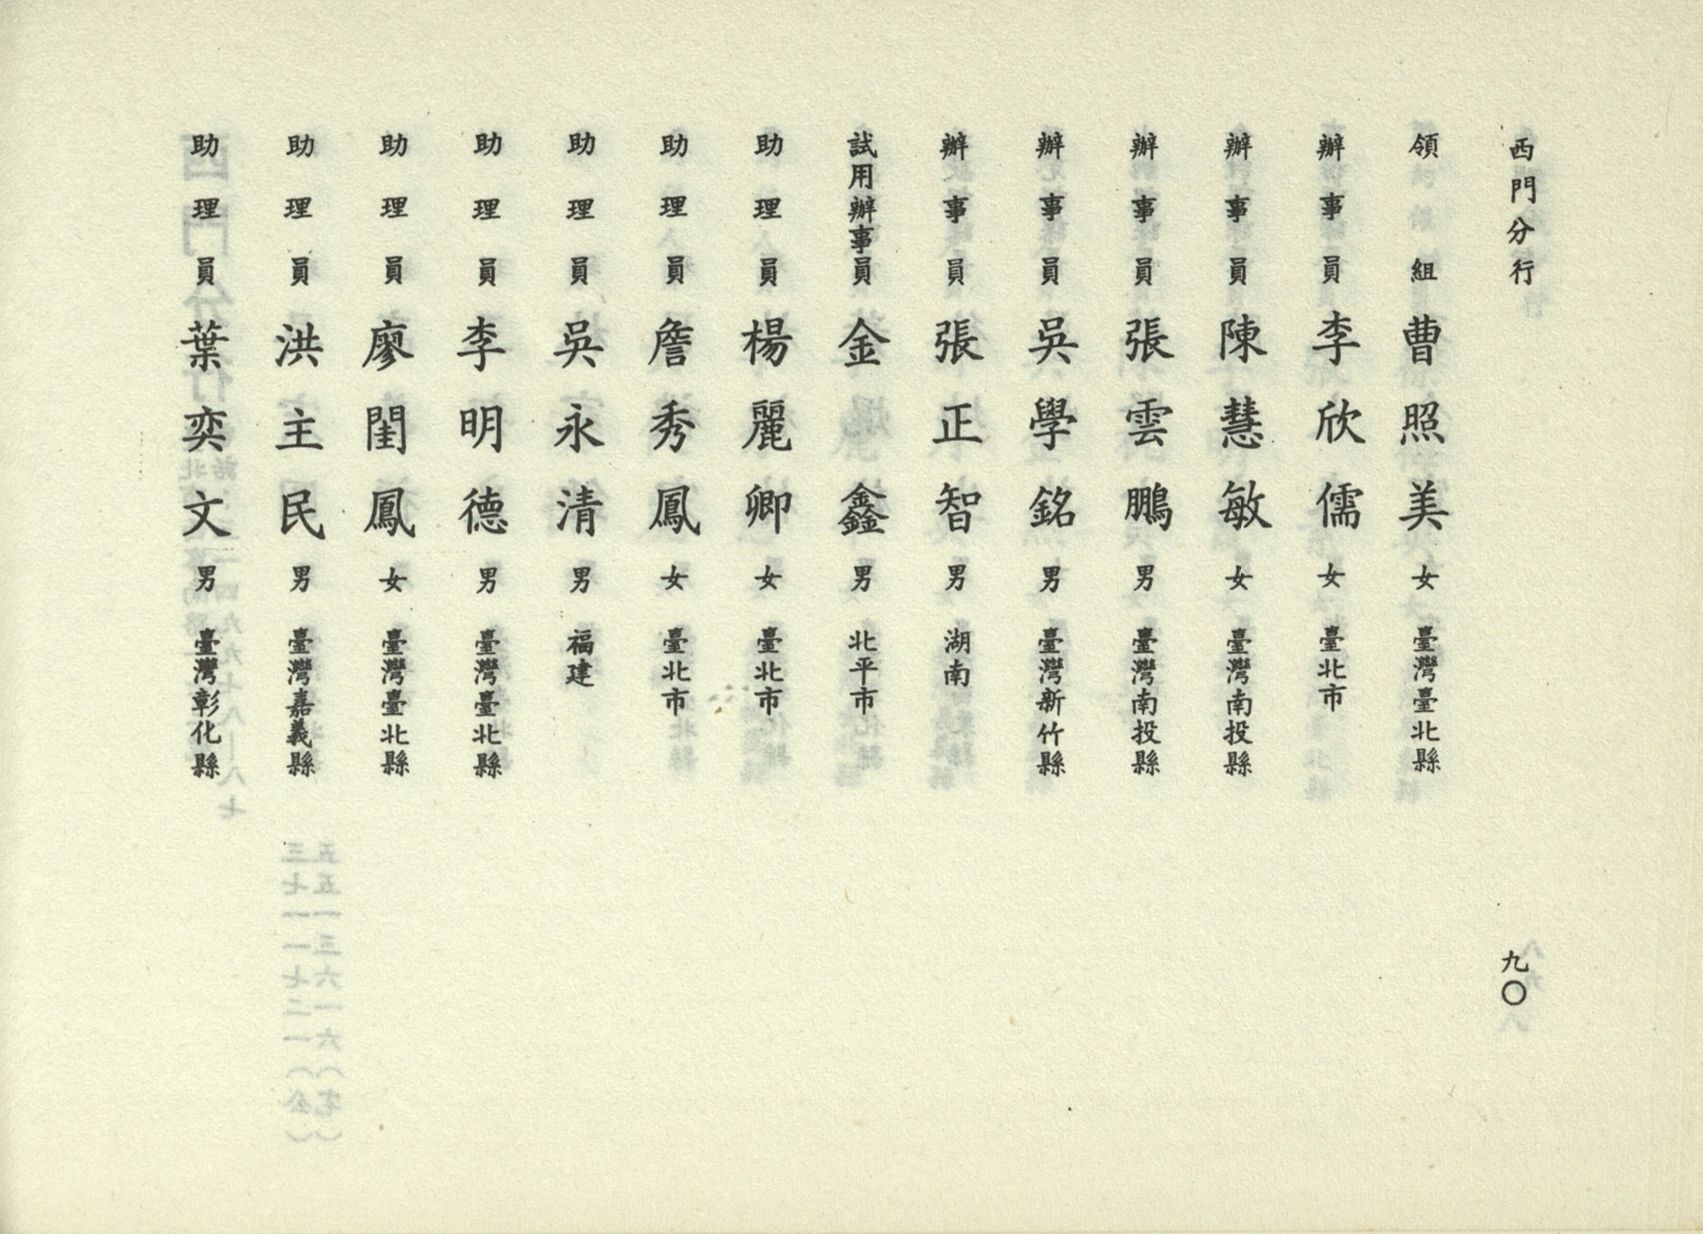 西門分行
九〇
領組 曹照美 女 臺灣臺北縣
辦事員 李欣儒 女 臺北市
辦事員 陳慧敏 女 臺灣南投縣
辦事員 張雲鵬 男 臺灣南投縣
辦事員 吳學銘 男 臺灣新竹縣
辦事員 張正智 男 湖南
試用辦事員 金鑫 男 北平市
助理員 楊麗卿 女 臺北市
助理員 詹秀鳳 女 臺北市
助理員 吳永清 男 福建
助理員 李明德 男 臺灣臺北縣
助理員 廖閨鳳 女 臺灣臺北縣
助理員 洪主民 男 臺灣嘉義縣
助理員 葉奕文 男 臺灣彰化縣